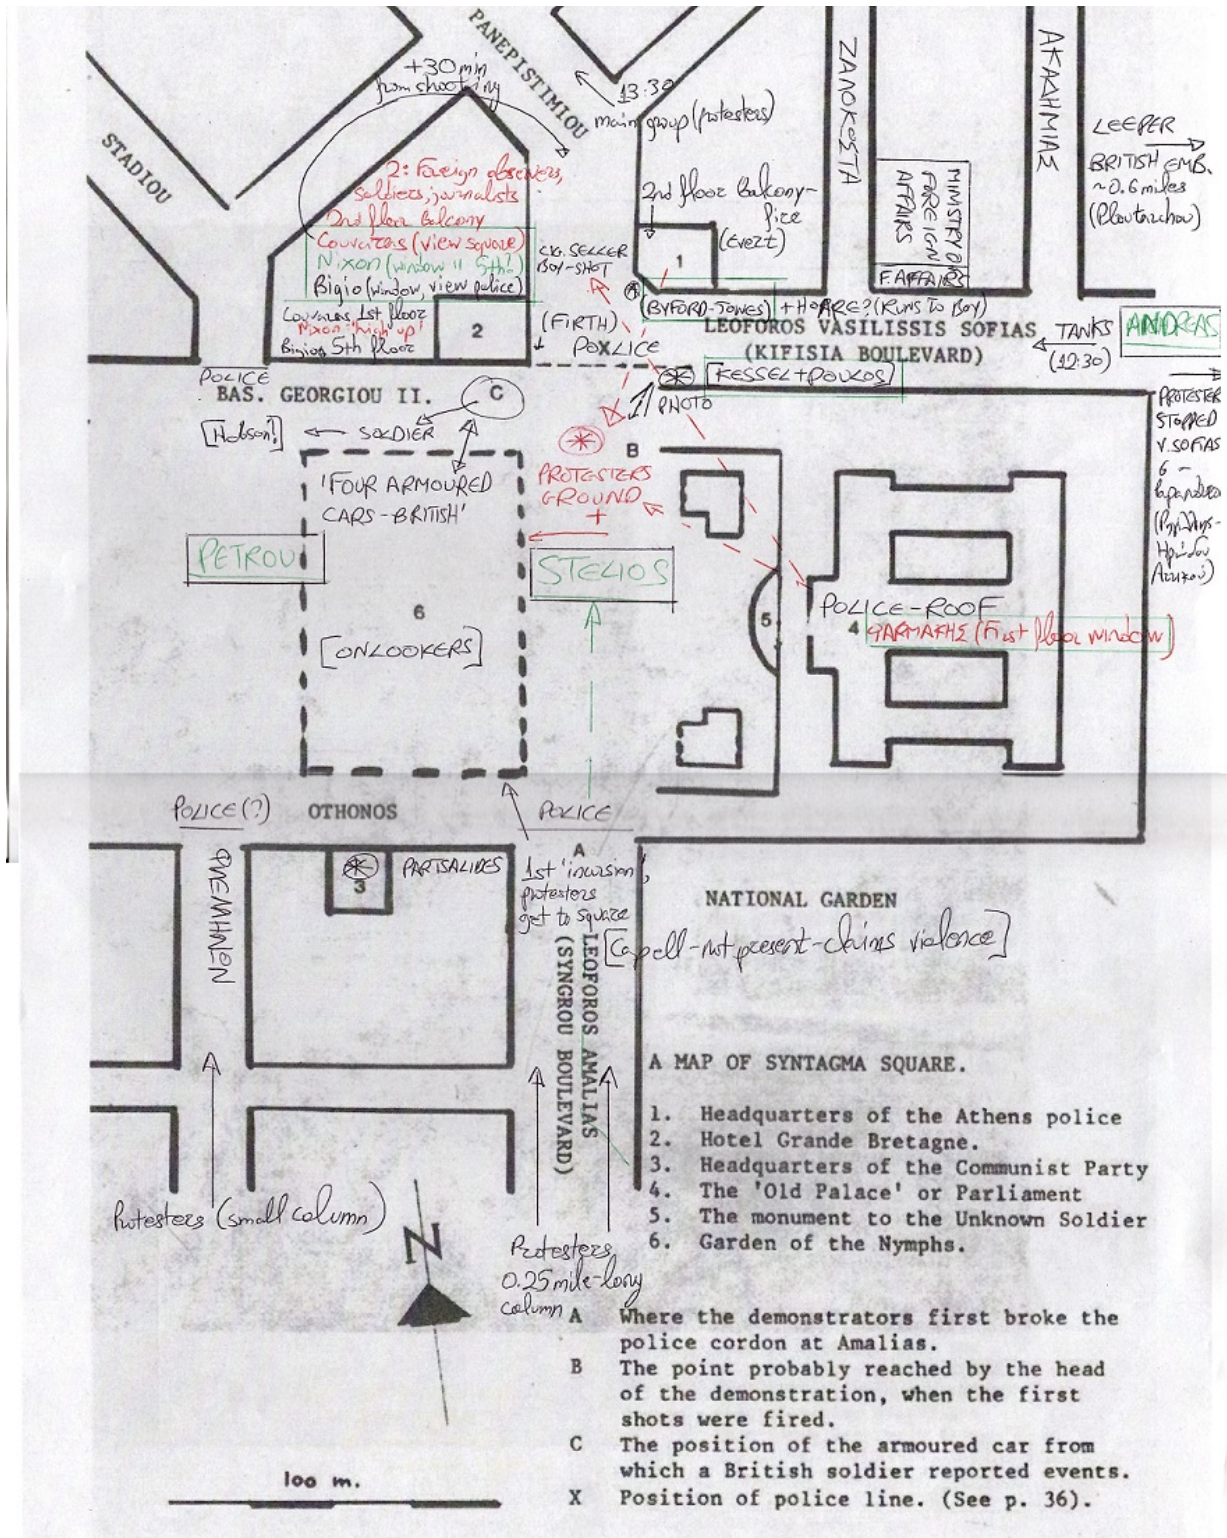 PANEPISTIMIOU
+30min
from shooting
13:30
main group (protesters)
STADIOU
ΖΑΛΟΚΩΣΤΑ
ΑΚΑΔΗΜΙΑΣ
LEEPER
BRITISH EMB.
~0.6 miles
(Ploutarchou)
2: Foreign observers,
soldiers, journalists
2nd floor balcony
Couvaras (view square)
Nixon (window 11 5th?)
Bigio (window, view police)
Couvaras 1st floor
Nixon 'high up'
Bigio 5th floor
2
2nd floor balcony-
fire
(Evert)
1
MINISTRY OF
FOREIGN
AFFAIRS
F. AFFAIRS
CIG. SELLER
BOY-SHOT
(BYFORD-JONES) + HOARE? (RUNS TO BOY)
(FIRTH)
POXLICE
LEOFOROS VASILISSIS SOFIAS
(KIFISIA BOULEVARD)
TANKS
(12:30)
ANDREAS
[KESSEL+POULOS]
PHOTO
POLICE
BAS. GEORGIOU II.
C
[Hobson?]
SOLDIER
B
PROTESTER
STOPPED
V. SOFIAS
'FOUR ARMOURED
CARS-BRITISH'
PROTESTERS
GROUND
+
PETROU
STELIOS
6
[ONLOOKERS]
5
POLICE-ROOF
4 ΦΑΡΜΑΚΗΣ (First floor window)
POLICE(?)
OTHONOS
POLICE
A
ΦΙΛΕΛΛΗΝΩΝ
3
PARTSALIDES
1st 'incursion',
protesters
get to square
NATIONAL GARDEN
[Capell-not present-claims violence]
LEOFOROS AMALIAS
(SYNGROU BOULEVARD)
Protesters (small column)
N
Protesters
0.25 mile-long
column
A MAP OF SYNTAGMA SQUARE.
1. Headquarters of the Athens police
2. Hotel Grande Bretagne.
3. Headquarters of the Communist Party
4. The 'Old Palace' or Parliament
5. The monument to the Unknown Soldier
6. Garden of the Nymphs.
A Where the demonstrators first broke the
police cordon at Amalias.
B The point probably reached by the head
of the demonstration, when the first
shots were fired.
C The position of the armoured car from
which a British soldier reported events.
X Position of police line. (See p. 36).
100 m.